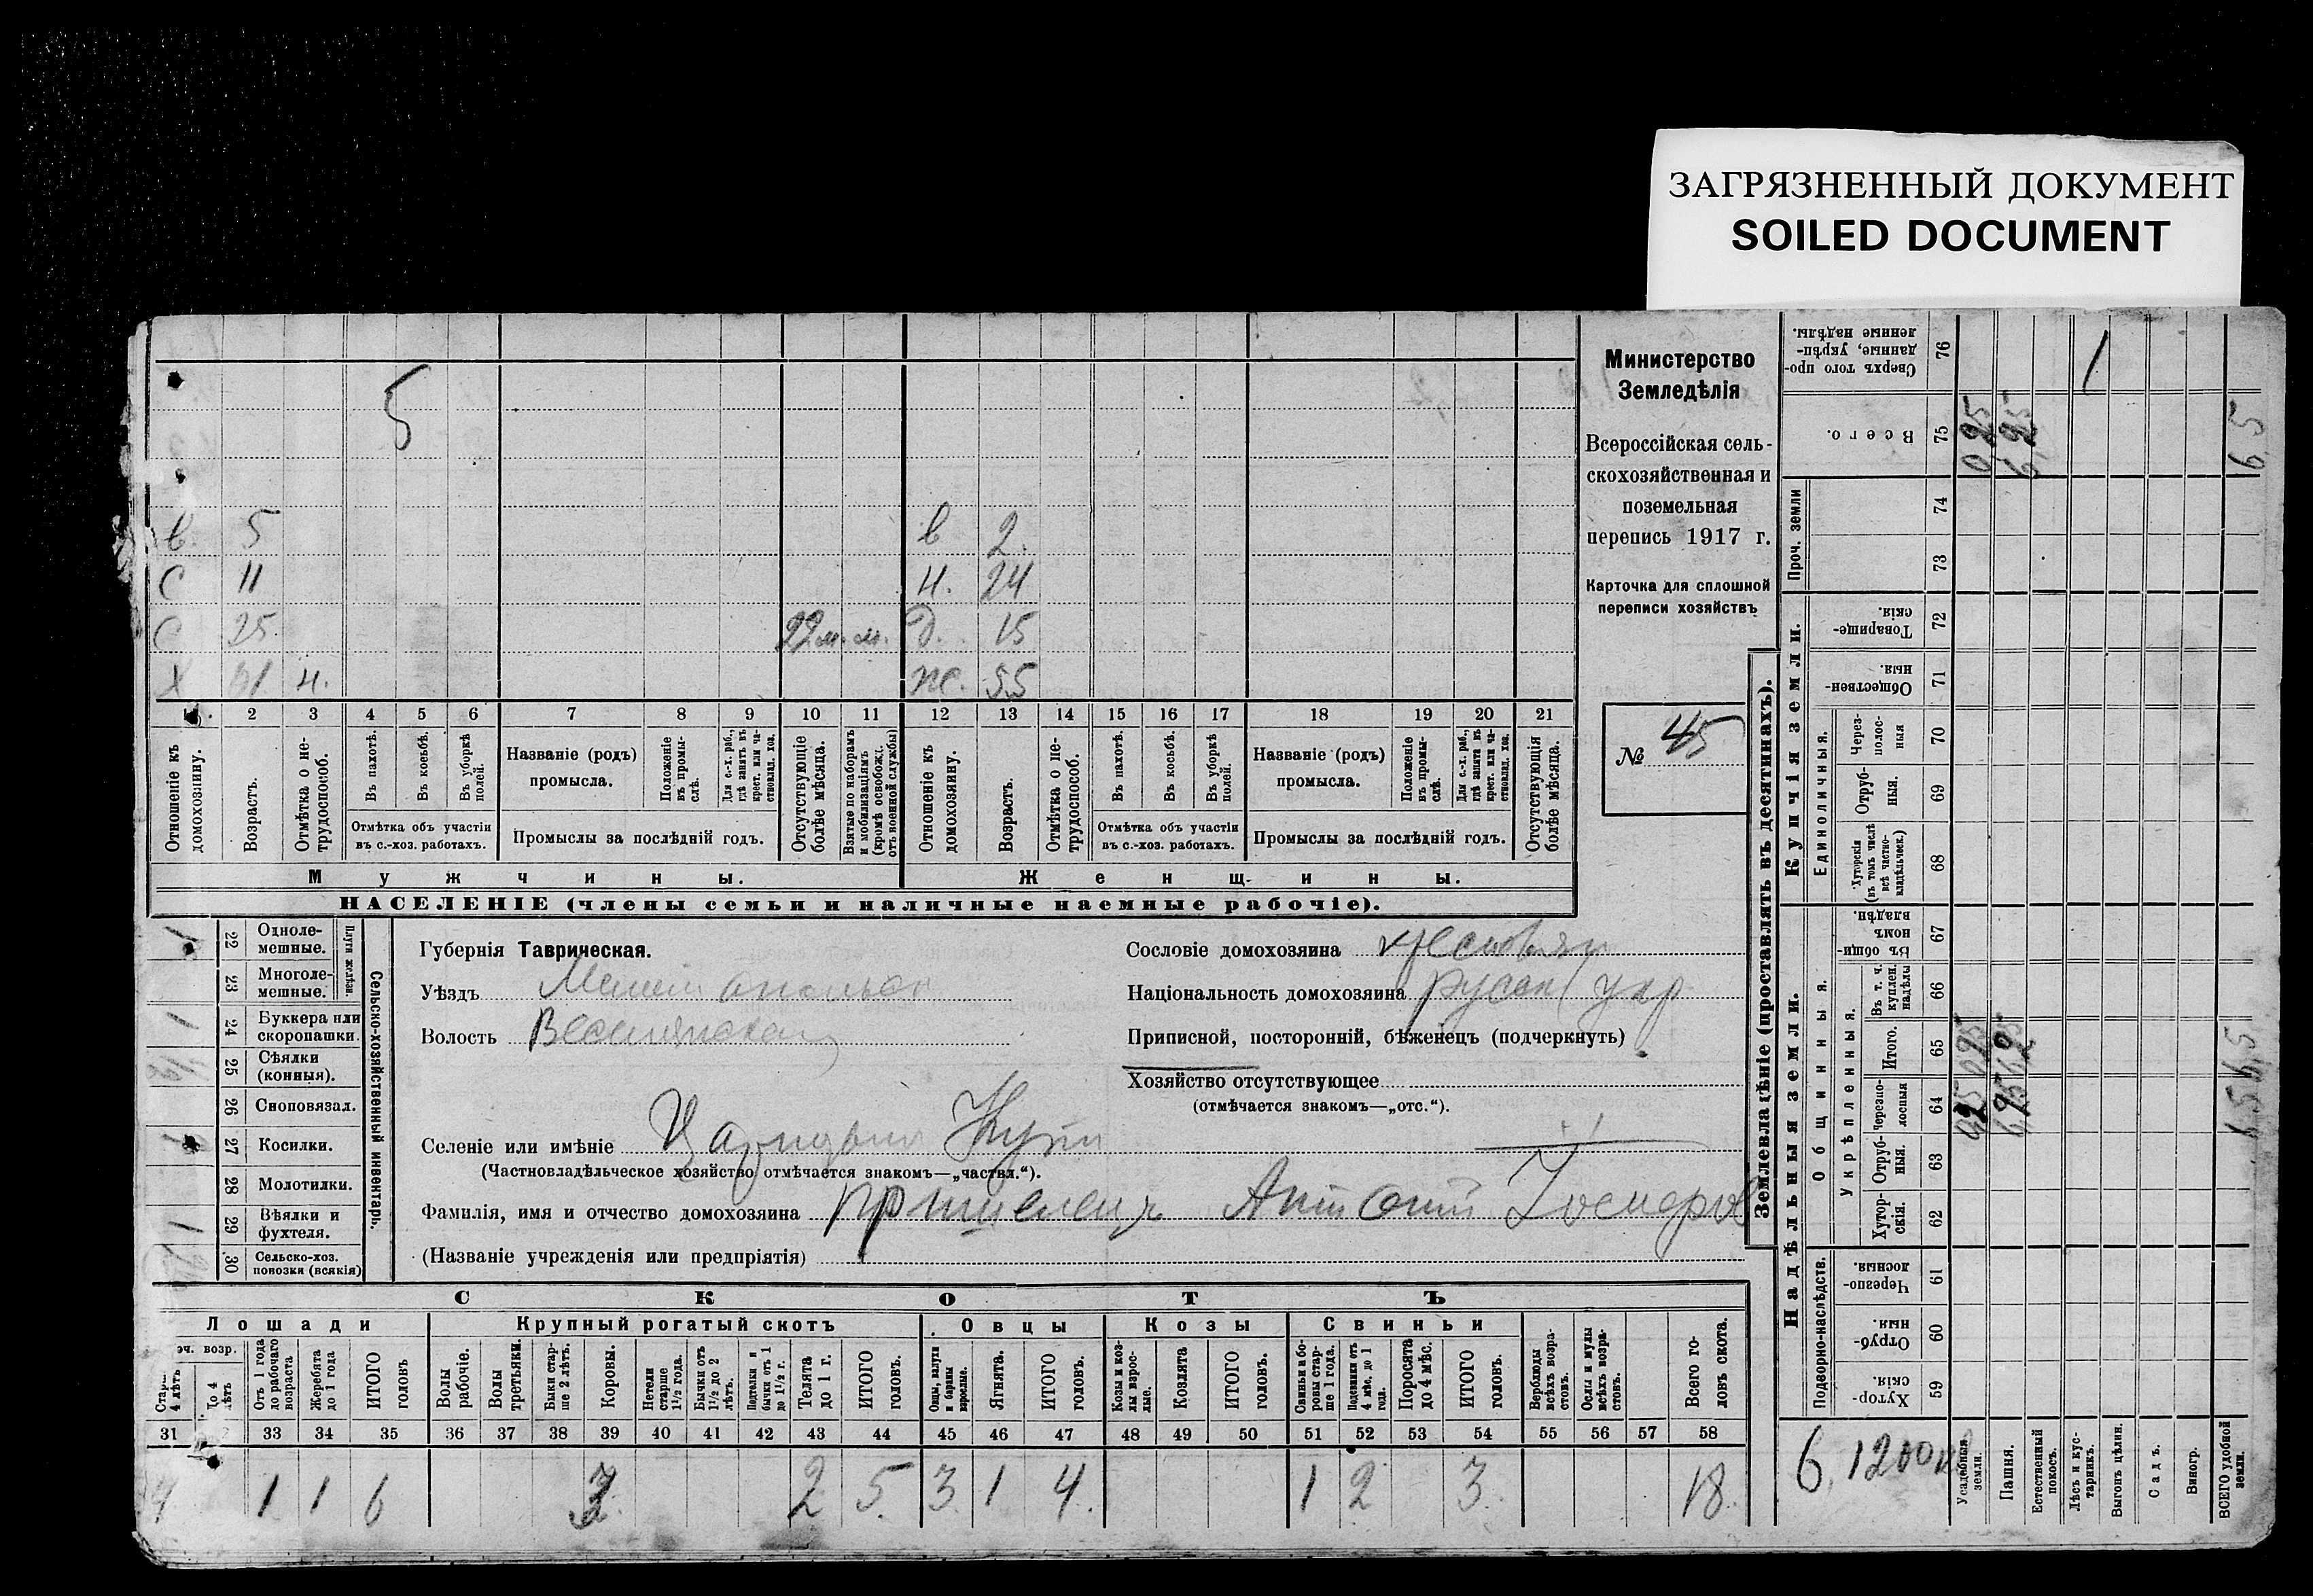 ЗАГРЯЗНЕННЫЙ ДОКУМЕНТ
SOILED DOCUMENT
5
в. 5 в 2.
с 11 н. 24
с 25. 22 м. м. д. 15
х 61 н. ж. 55
1 2 3 4 5 6 7 8 9 10 11 12 13 14 15 16 17 18 19 20 21
Отношеніе къ домохозяину.
Возрастъ.
Отмѣтка о не-трудоспособ.
Въ пахотѣ.
Въ косьбѣ.
Въ уборкѣ полей.
Отмѣтка объ участіи въ с.-хоз. работахъ.
Названіе (родъ) промысла.
Положеніе въ промы-слѣ.
Для с.-х. раб., гдѣ занятъ въ крест. или ча-стновлад. хоз.
Промыслы за послѣдній годъ.
Отсутствующіе болѣе мѣсяца.
Взятые по наборамъ и мобилизаціямъ (кромѣ освобожд. отъ военной службы)
Отношеніе къ домохозяину.
Возрастъ.
Отмѣтка о не-трудоспособ.
Въ пахотѣ.
Въ косьбѣ.
Въ уборкѣ полей.
Отмѣтка объ участіи въ с.-хоз. работахъ.
Названіе (родъ) промысла.
Положеніе въ промы-слѣ.
Для с.-х. раб., гдѣ занята въ крест. или ча-стновлад. хоз.
Промыслы за послѣдній годъ.
Отсутствующія болѣе мѣсяца.
Мужчины.
Женщины.
НАСЕЛЕНІЕ (члены семьи и наличные наемные рабочіе).
Министерство
Земледѣлія
Всероссійская сель-
скохозяйственная и
поземельная
перепись 1917 г.
Карточка для сплошной
переписи хозяйствъ
№ 45
Сельско-хозяйственный инвентарь.
Плуги желѣзн.
22 Одноле-мешные. 1
23 Многоле-мешные.
24 Буккера или скоропашки. 1
25 Сѣялки (конныя).
26 Сноповязал.
27 Косилки.
28 Молотилки.
29 Вѣялки и фухтеля. 1
30 Сельско-хоз. повозки (всякія)
Губернія Таврическая.
Уѣздъ
Волость
Селеніе или имѣніе
(Частновладѣльческое хозяйство отмѣчается знакомъ—„частвл.“).
Фамилія, имя и отчество домохозяина
(Названіе учрежденія или предпріятія)
Сословіе домохозяина
Національность домохозяина
Приписной, посторонній, бѣженецъ (подчеркнуть)
Хозяйство отсутствующее
(отмѣчается знакомъ—„отс.“).
СКОТЪ
Лошади Крупный рогатый скотъ Овцы Козы Свиньи
Отъ 1 года до рабочаго возраста
Жеребята до 1 года
ИТОГО головъ
Волы рабочіе.
Волы третьяки.
Быки стар-ше 2 лѣтъ.
Коровы.
Нетели старше 1½ года.
Бычки отъ 1½ до 2 лѣтъ.
Подтелки и бычки отъ 1 до 1½ г.
Телята до 1 г.
ИТОГО головъ.
Овцы, валухи и бараны взрослые.
Ягнята.
ИТОГО головъ.
Козы и коз-лы взрос-лые.
Козлята
ИТОГО головъ.
Свиньи и бо-ровы стар-ше 1 года.
Подсвинки отъ 4 мѣс. до 1 года.
Поросята до 4 мѣс.
ИТОГО головъ.
Верблюды всѣхъ возра-стовъ.
Ослы и мулы всѣхъ возра-стовъ.
Всего го-ловъ скота.
31 33 34 35 36 37 38 39 40 41 42 43 44 45 46 47 48 49 50 51 52 53 54 55 56 57 58
4 1 1 6 3 2 5. 3 1 4. 1 2 3. 18.
Землевладѣніе (проставлять въ десятинахъ).
Надѣльныя земли.
Купчія земли.
Проч. земли
Подворно-наслѣдств.
Общинныя.
Укрѣпленныя.
Единоличныя.
Сверхъ того про-данные, укрѣп-ленные надѣлы. 76
Всего. 75
74
73
Товарище-скія. 72
Обществен-ныя 71
Через-полос-ныя 70
Отруб-ныя. 69
Хуторскія (въ томъ числѣ всѣ частно-владѣльческ.) 68
Въ общи-номъ владѣн. 67
Въ т. ч. куплен. надѣлы 66
Итого. 65
Черезпо-лосныя 64
Отруб-ныя. 63
Хутор-скія. 62
Черезпо-лосныя. 61
Отруб-ныя. 60
Хутор-скія. 59
Усадебныя земли.
Пашня.
Естественный покосъ.
Лѣсъ и кус-тарникъ.
Выгонъ цѣлин.
Садъ.
Виногр.
ВСЕГО удобной земли.